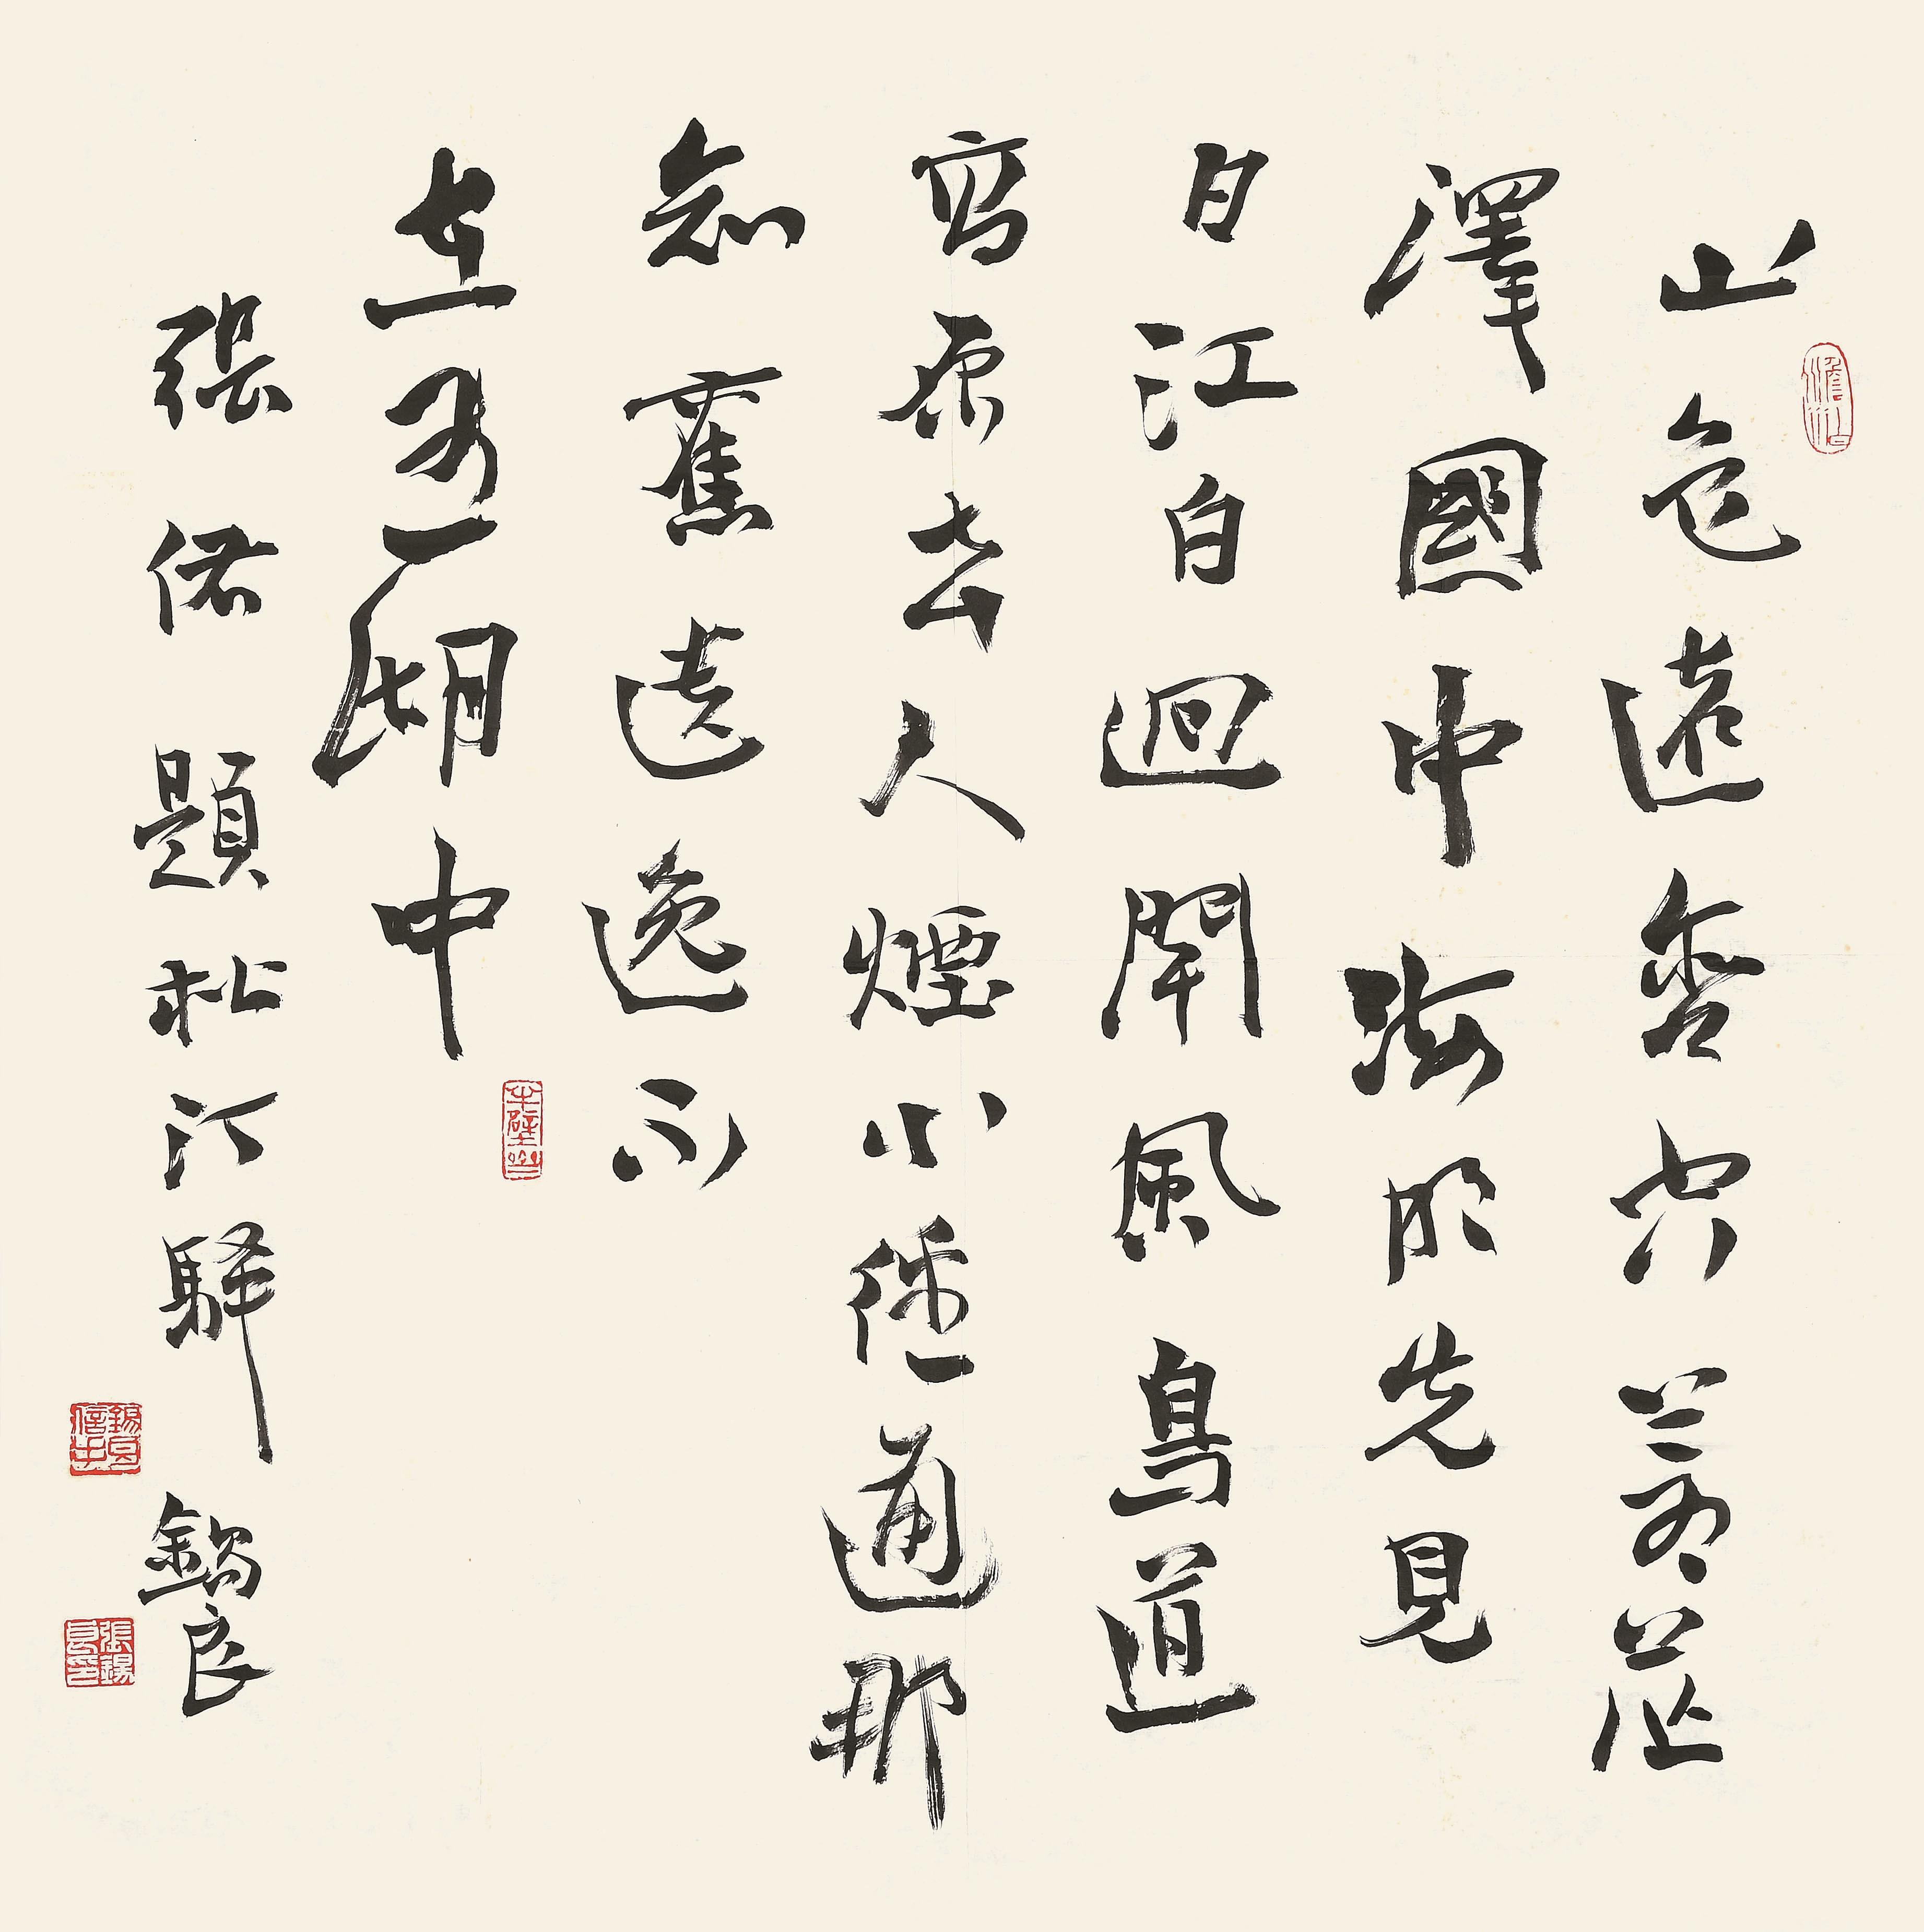 澹泊
山色遠含空蒼茫
澤國中海明先見
日江白迴聞風鳥道
高原去人煙小徑通那
知舊遺逸不
在五湖中
張祜題松汀驛 錫良
張錫良印